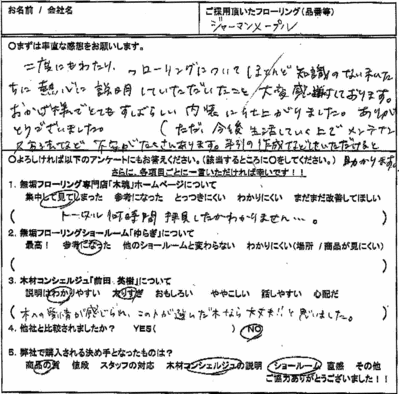 お名前 / 会社名
ご採用頂いたフローリング(品番等)
ジャーマンメープル
〇まずは率直な感想をお願いします。
二度にもわたり、フローリングについてほとんど知識のない私た
ちに熱心に説明していただいたこと大変感謝しております。
おかげ様でとてもすばらしい内装に仕上がりました。ありが
とうございました。 (ただ、今後生活していく上でメンテナン
スなど 不安がたくさんあります。手引の作成などをいただけると
助かります。
〇よろしければ以下のアンケートにもお答えください。(該当するところに〇をしてください。)
さらに、各項目ごとに一言いただければ幸いです!!
1. 無垢フローリング専門店「木魂」ホームページについて
集中して見てしまった 参考になった とっつきにくく わかりにくい まだまだ改善してほしい
(トータル何時間拝見したかわかりません…。)
2. 無垢フローリングショールーム「ゆらぎ」について
最高! 参考になった 他のショールームと変わらない わかりにくい(場所 / 商品が見にくい)
( )
3. 木材コンシェルジュ「前田 英樹」について
説明はわかりやすい 太りすぎ おもしろい ややこしい 話しやすい 心配だ
(木への愛情が感じられ、この人が選んだ木なら大丈夫!!と思いました。)
4. 他社と比較されましたか? YES( ) NO
5. 弊社で購入される決め手となったものは?
商品の質 値段 スタッフの対応 木材コンシェルジュの説明 ショールーム 直感 その他
ご協力ありがとうございました!!